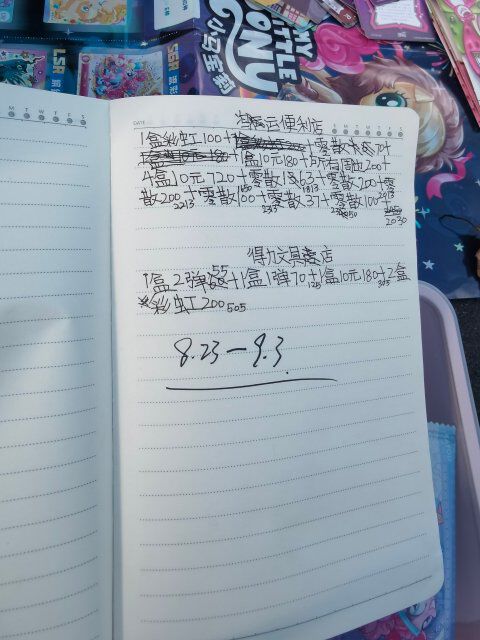 MY
LITTLE
PONY
小马宝莉
LSR
SGR
DATE
M T W T F S
S M T W T F S
便利店
1盒彩虹100+
+零散
+1盒10元180+
200+
4盒10元720+零散163+零散200+零
1450
1813
2013
散200+零散100+零散37+零散100+
2213
2313
2350
2030
得力文具店
1盒2弹55+1盒1弹70+1盒10元180+2盒
125
305
彩虹200
505
8.23—9.3